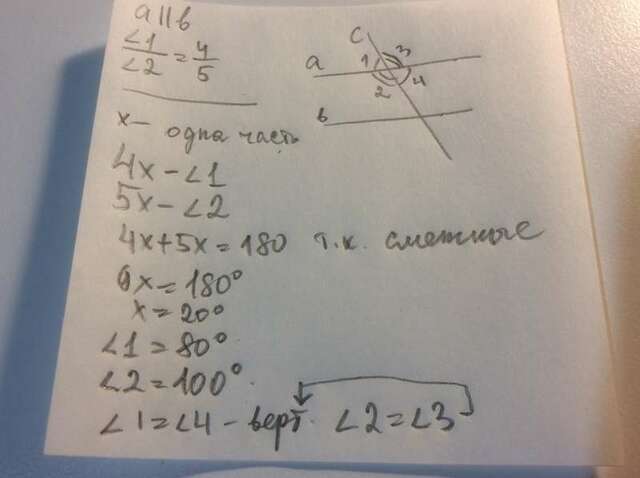 a||b
∠1/∠2 = 4/5
c
1 3
a
2 4
b
x – одна часть
4x – ∠1
5x – ∠2
4x+5x=180 т.к. смежные
9x=180°
x=20°
∠1=80°
∠2=100°.
∠1=∠4 – верт. ∠2=∠3